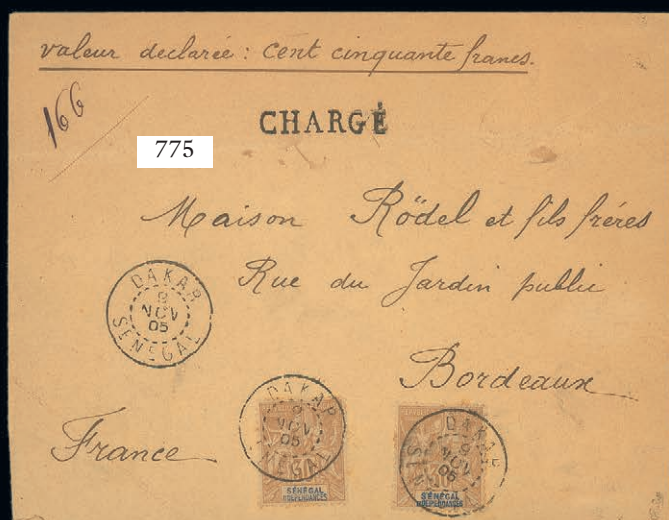 valeur declarée : cent cinquante francs.
166
CHARGÉ
775
Maison Rödel et fils frères
Rue du Jardin public
Bordeaux
France
DAKAR
9
NOV
05
SENEGAL
DAKAR
9
NOV
05
SÉNÉGAL
DÉPENDANCES
DAKAR
9
NOV
05
SÉNÉGAL
DÉPENDANCES